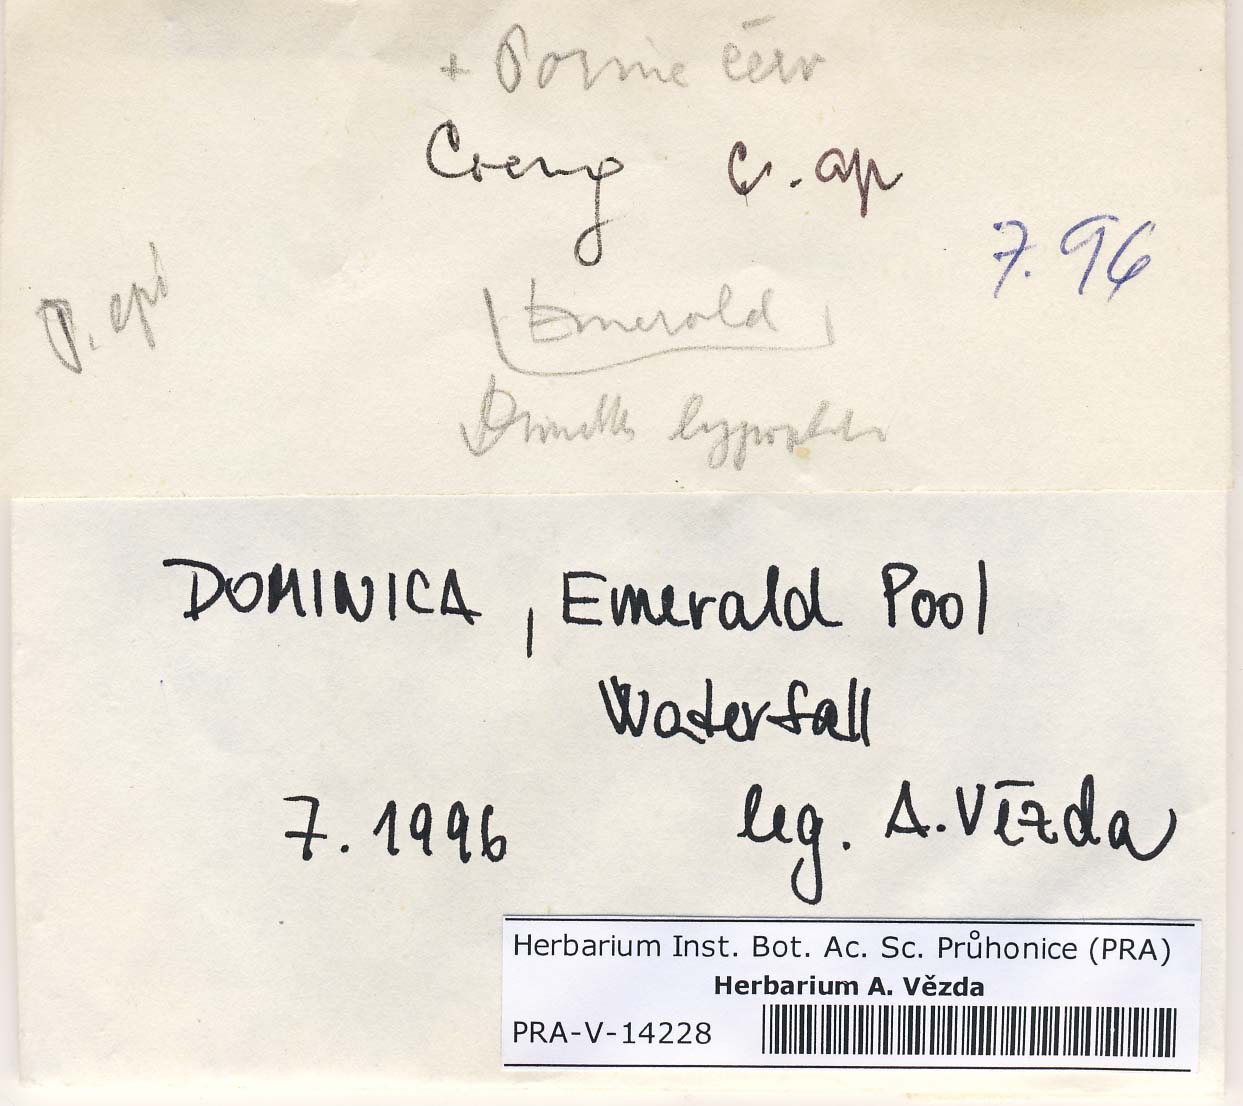 + Porine červ
Coenog c. ap
7.96
p. epi
Emerald
DOMINICA, Emerald Pool
Waterfall
7. 1996 leg. A. Vězda
Herbarium Inst. Bot. Ac. Sc. Průhonice (PRA)
Herbarium A. Vězda
PRA-V-14228